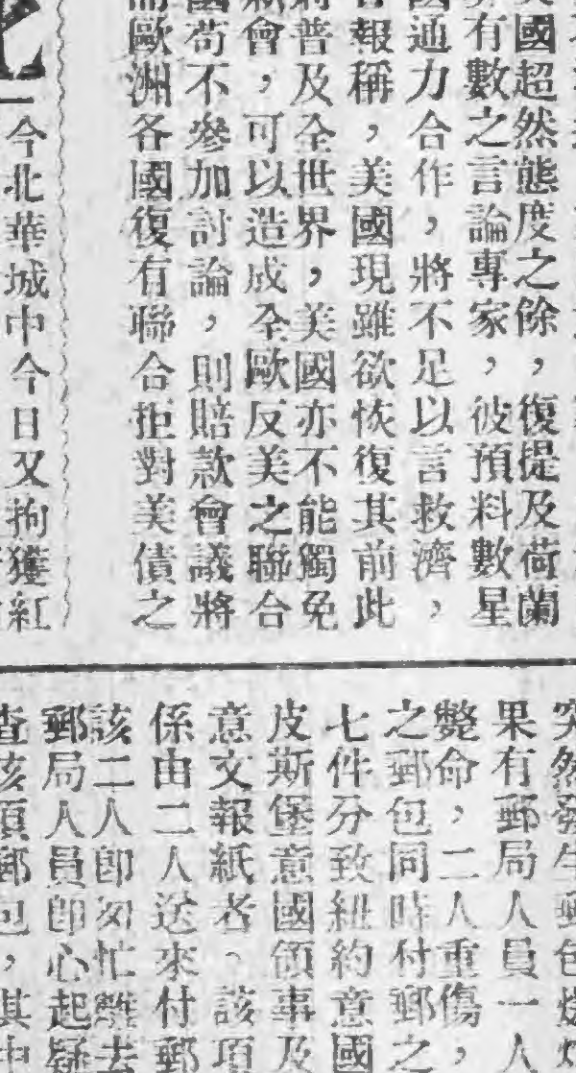 國超然態度之餘，復提及荷蘭
有數之言論專家，彼預料數星
通力合作，將不足以言救濟，
報稱，美國現雖欲恢復其前此
普及全世界，美國亦不能獨免
會，可以造成全歐反美之聯合
苟不參加討論，則賠款會議將
歐洲各國復有聯合拒對美債之
今北華城中今日又拘獲紅
突然發生郵包爆炸
果有郵局人員一人
斃命，二人重傷，
之郵包同時付郵之
七件分致紐約意國
皮斯堡意國領事及
意文報紙者。該項
係由二人送來付郵
該二人卽匆忙離去
郵局人員卽心起疑
查該項郵包，其中